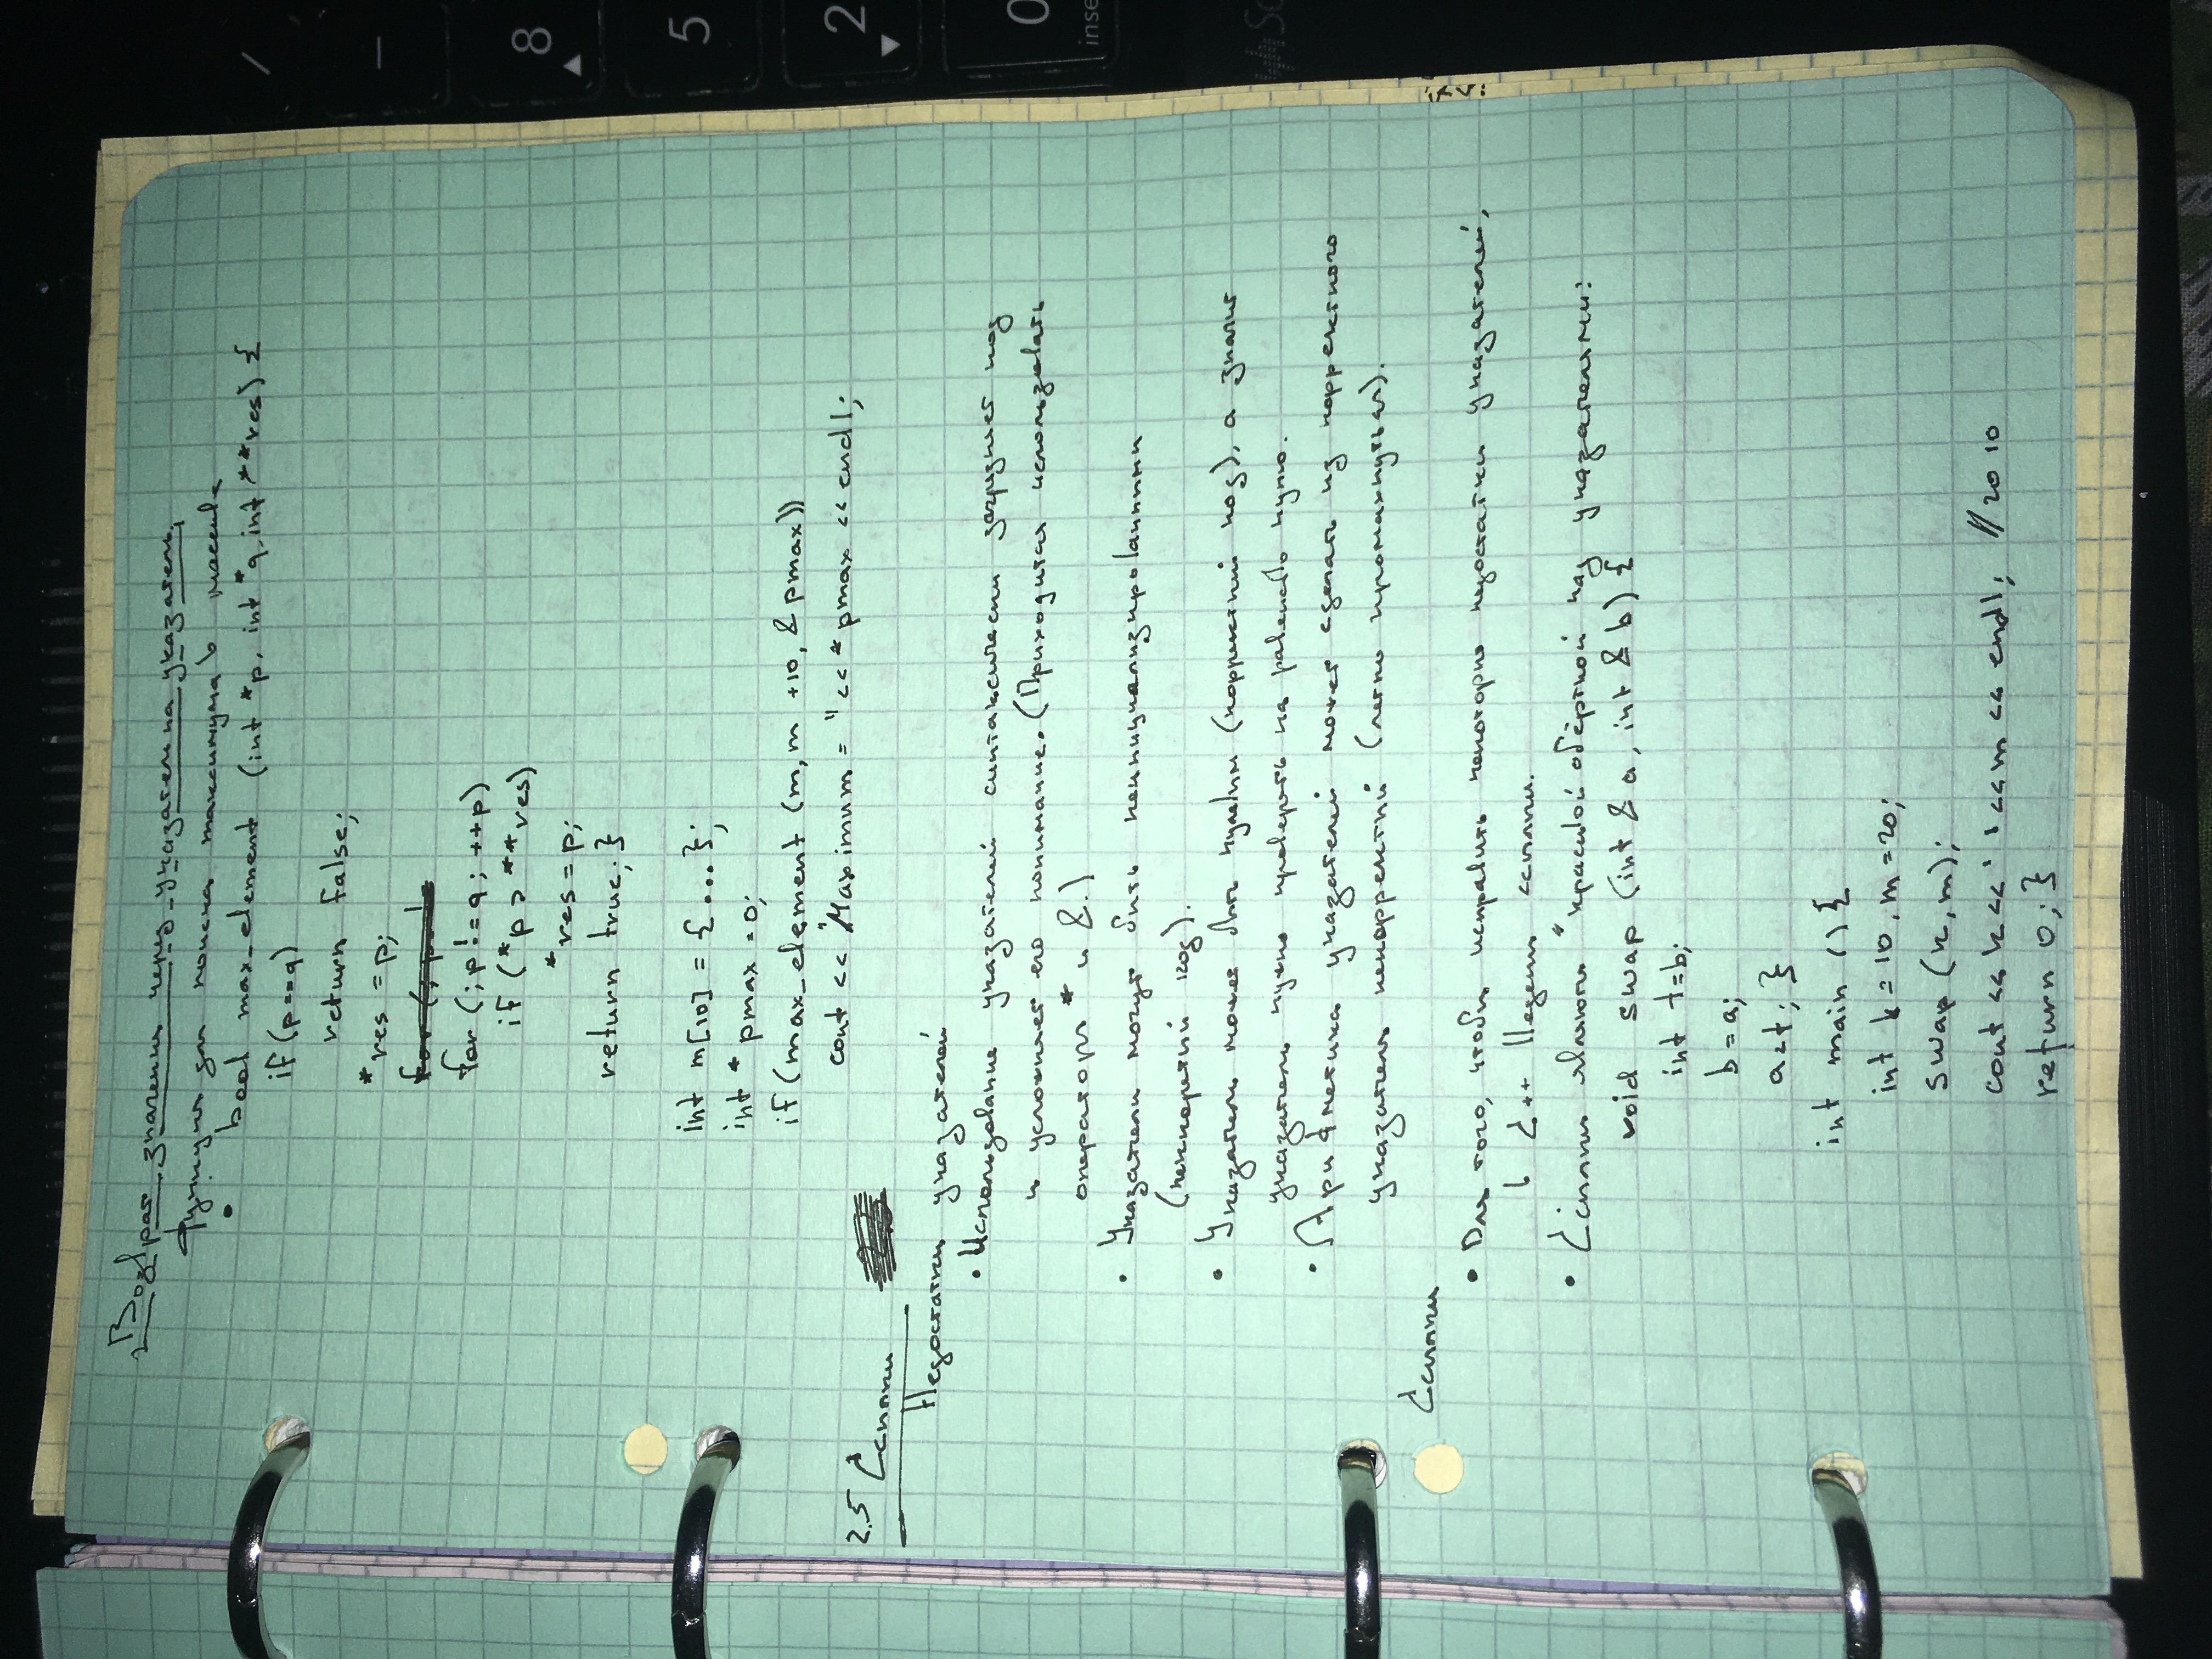 Возврат значения через указатель на указатель.
Функция для поиска максимума в массиве
• bool max_element (int *p, int *q, int **res) {
if (p==q)
return false;
*res = p;
for (; p!=q; ++p)
if (*p > **res)
*res = p;
return true; }
int m[10] = {...};
int * pmax = 0;
if (max_element (m, m +10, & pmax))
cout << "Maximum = " << *pmax << endl;
2.5 Ссылки
Недостатки указателей
• Использование указателей синтаксически загрязняет код
и усложняет его понимание. (Приходится использовать
операторы * и &.)
• Указатели могут быть неинициализированными
(некоректный код).
• Указатель может быть нулевым (корректный код), а значит
указатель нужно проверять на равенство нулю.
• Арифметика указателей может сделать из корректного
указателя некорректный (легко промахнуться).
Ссылки
• Для того, чтобы исправить некоторые недостатки указателей,
в C++ введены ссылки.
• Ссылки являются "красивой обёрткой над указателями:
void swap (int & a, int & b) {
int t=b;
b = a;
a=t; }
int main () {
int k = 10, m = 20;
swap (k, m);
cout << k << ' ' << m << endl; // 20 10
return 0; }
8
5
2
0
inse